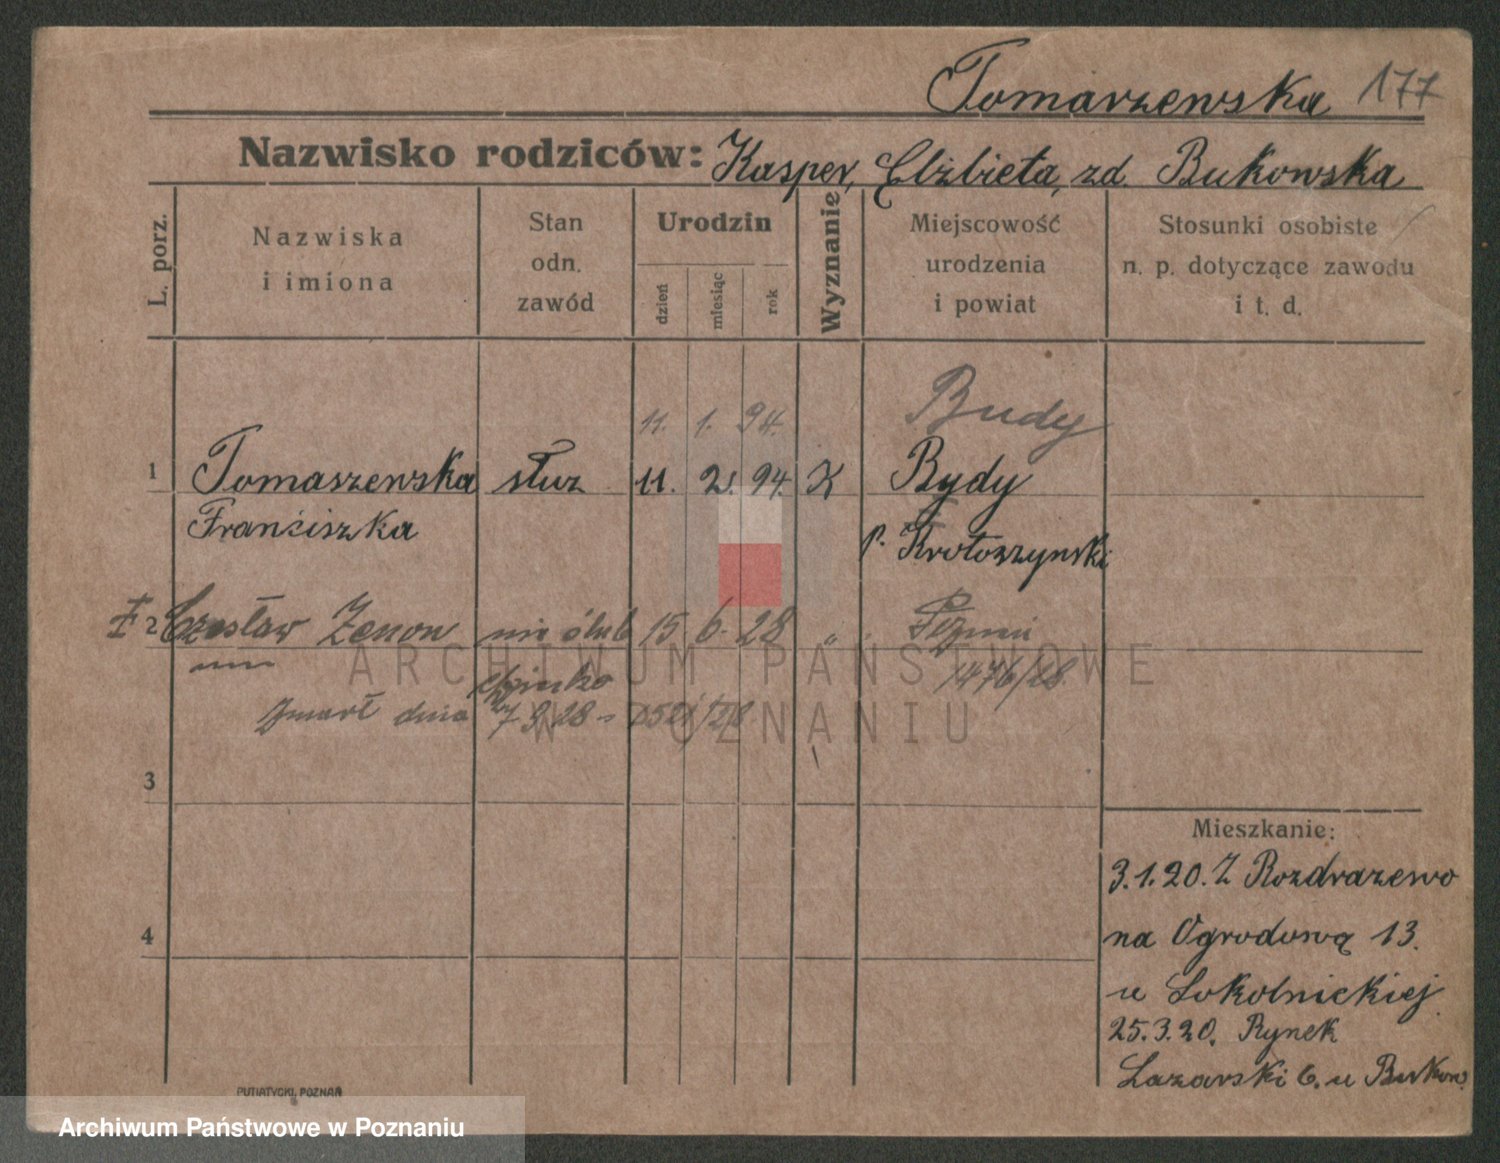 Tomarzewska 177
Nazwisko rodziców: Kasper, Elżbieta, zd. Bukowska
L. porz.
Nazwiska
i imiona
Stan
odn.
zawód
Urodzin
dzień
miesiąc
rok
Wyznanie
Miejscowość
urodzenia
i powiat
Stosunki osobiste
n. p. dotyczące zawodu
i t. d.
11. 1. 94. Budy
1 Tomaszewska służ 11. 2. 94. K Bydy
Franciszka p. Krotoszynski
2 Czesław Zenon 15 6. 28 "
1476/28
Zmarł dnia
ARCHIWUM PAŃSTWOWE
W POZNANIU
3
4
Mieszkanie:
3.1.20. Z Rozdrazewo
na Ogrodową 13.
u Sokolnickiej
25.3.20. Rynek
Lazarski 6. u Burkow.
PUTIATYCKI, POZNAŃ
Archiwum Państwowe w Poznaniu